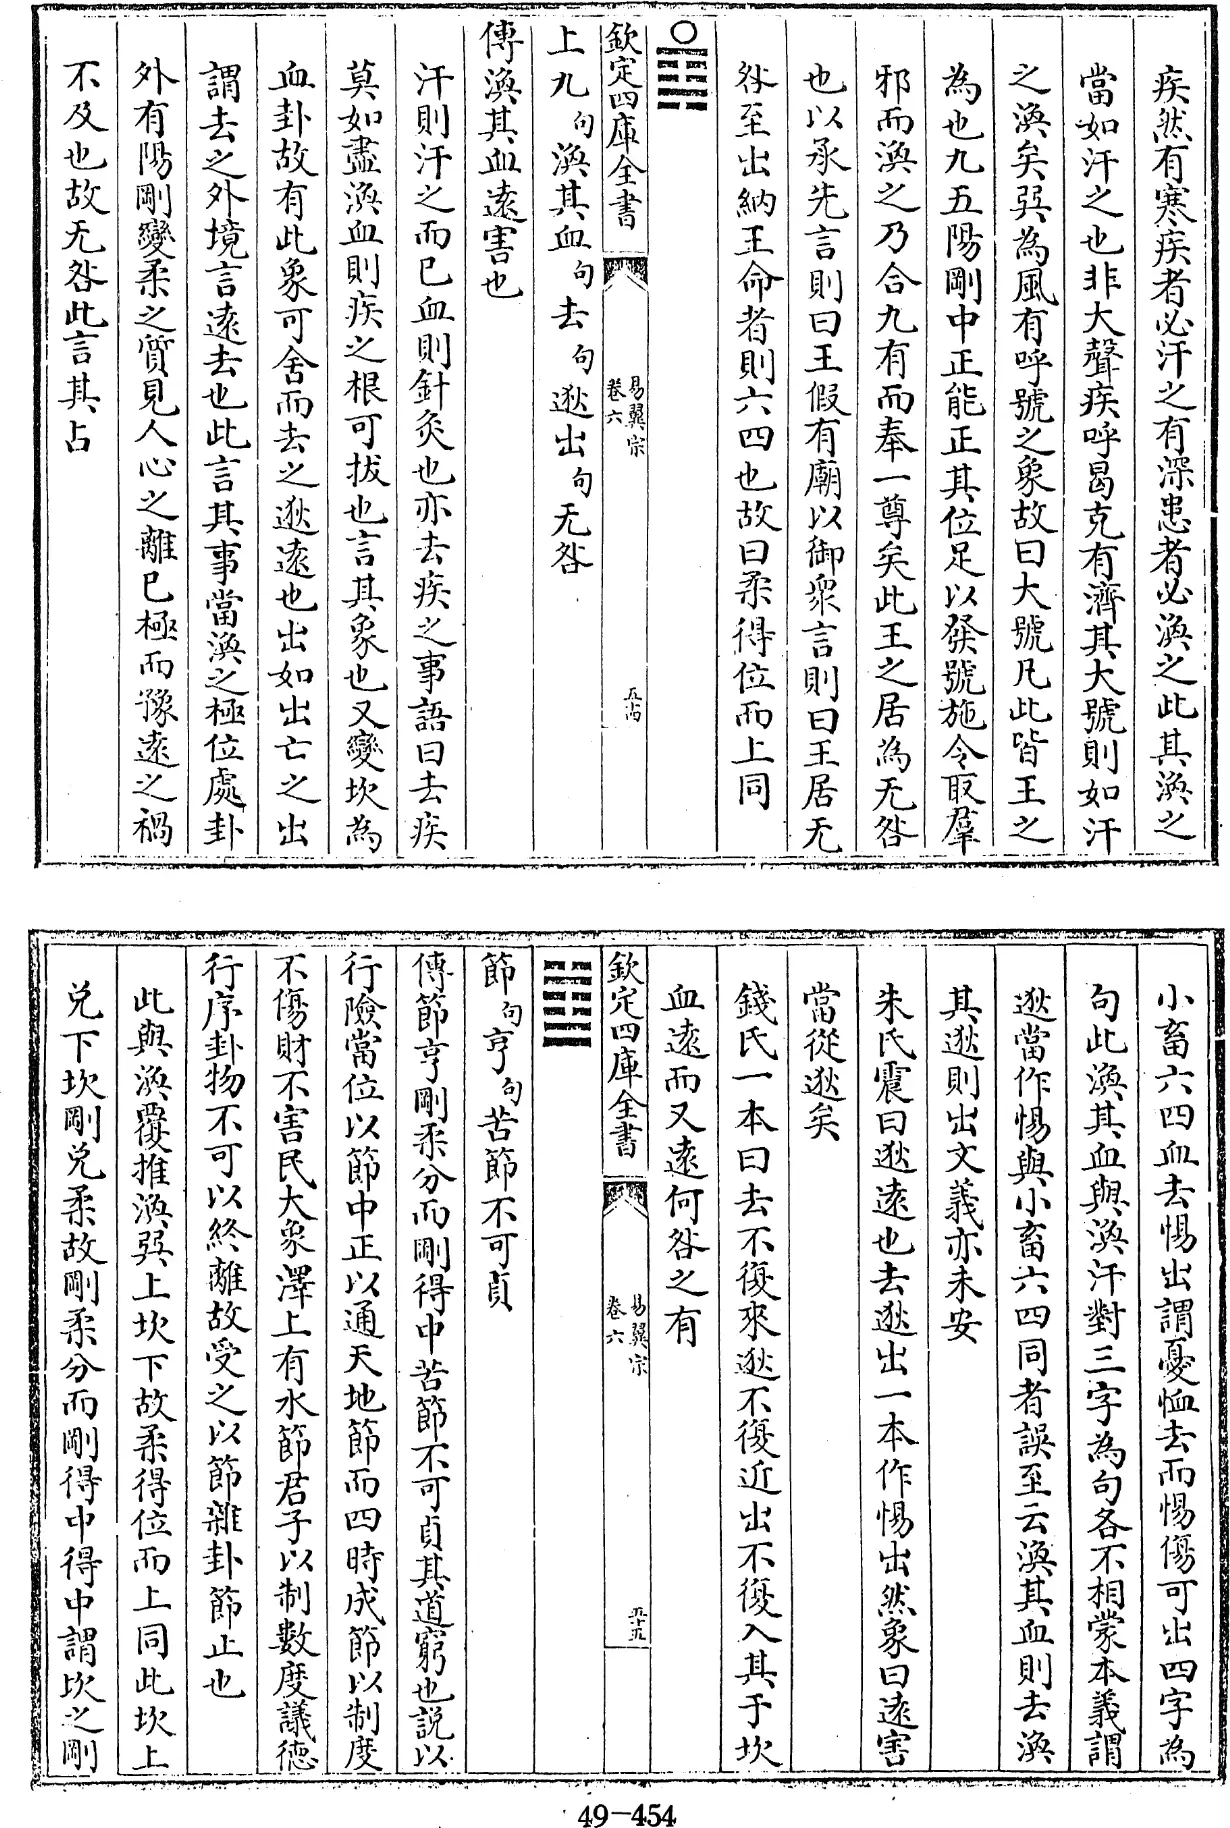 疾然有寒疾者必汗之有深患者必渙之此其渙之
當如汗之也非大聲疾呼曷克有濟其大號則如汗
之渙矣巽為風有呼號之象故曰大號凡此皆王之
為也九五陽剛中正能正其位足以發號施令取羣
邪而渙之乃合九有而奉一尊矣此王之居為无咎
也以承先言則曰王假有廟以御衆言則曰王居无
咎至出納王命者則六四也故曰柔得位而上同
○䷺
欽定四庫全書
易翼宗
卷六
五十四
上九句渙其血句去句逖出句无咎
傳渙其血遠害也
汗則汗之而已血則針灸也亦去疾之事語曰去疾
莫如盡渙血則疾之根可拔也言其象也又變坎為
血卦故有此象可舍而去之逖遠也出如出亡之出
謂去之外境言遠去也此言其事當渙之極位處卦
外有陽剛變柔之質見人心之離已極而豫遠之禍
不及也故无咎此言其占
小畜六四血去惕出謂憂恤去而惕傷可出四字為
句此渙其血與渙汗對三字為句各不相蒙本義謂
逖當作惕與小畜六四同者誤至云渙其血則去渙
其逖則出文義亦未安
朱氏震曰逖遠也去逖出一本作惕出然象曰遠害
當從逖矣
錢氏一本曰去不復來逖不復近出不復入其于坎
血遠而又遠何咎之有
欽定四庫全書
易翼宗
卷六
五十五
䷻
節句亨句苦節不可貞
傳節亨剛柔分而剛得中苦節不可貞其道窮也說以
行險當位以節中正以通天地節而四時成節以制度
不傷財不害民大象澤上有水節君子以制數度議德
行序卦物不可以終離故受之以節雜卦節止也
此與渙覆推渙巽上坎下故柔得位而上同此坎上
兌下坎剛兌柔故剛柔分而剛得中得中謂坎之剛
49-454